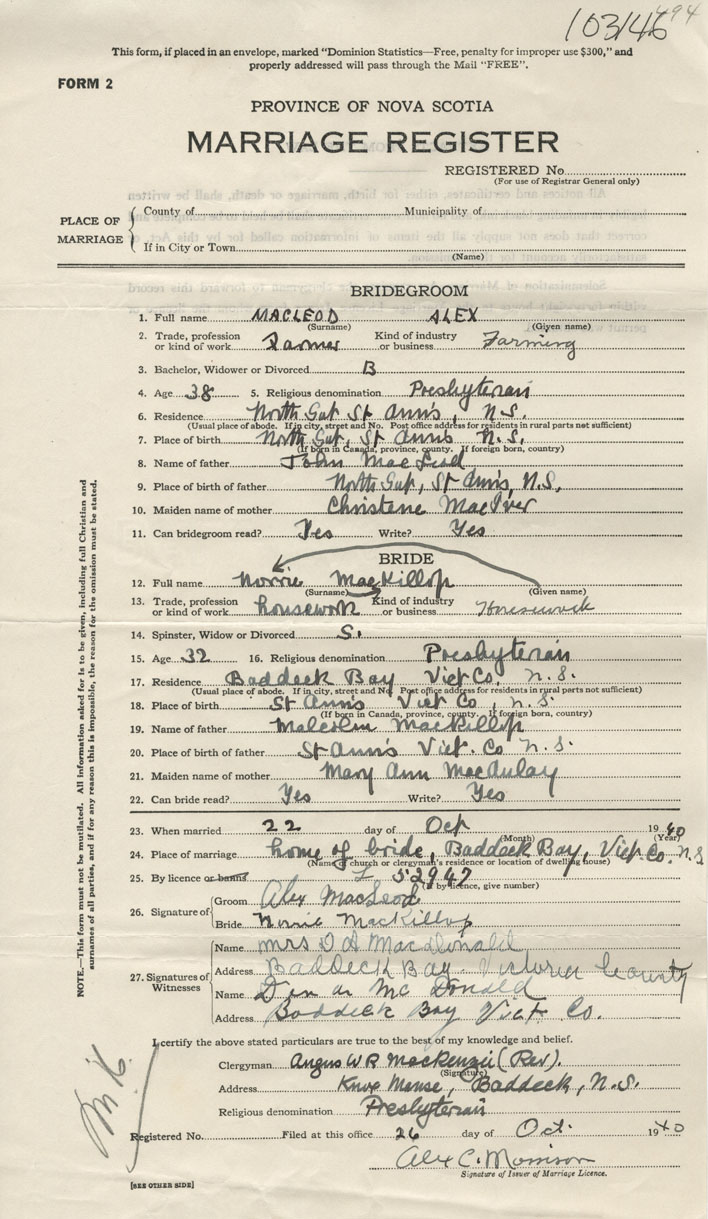 103146
494
This form, if placed in an envelope, marked "Dominion Statistics—Free, penalty for improper use $300," and
properly addressed will pass through the Mail "FREE".
FORM 2
PROVINCE OF NOVA SCOTIA
MARRIAGE REGISTER
REGISTERED No.
(For use of Registrar General only)
PLACE OF MARRIAGE
County of Municipality of
If in City or Town
(Name)
BRIDEGROOM
1. Full name MACLEOD ALEX
(Surname) (Given name)
2. Trade, profession or kind of work Farmer Kind of industry or business Farming
3. Bachelor, Widower or Divorced B
4. Age 38 5. Religious denomination Presbyterian
6. Residence North Gut St Ann's, N.S.
(Usual place of abode. If in city, street and No. Post office address for residents in rural parts not sufficient)
7. Place of birth North Gut, St Anns N.S.
(If born in Canada, province, county. If foreign born, country)
8. Name of father John MacLeod
9. Place of birth of father North Gut, St Ann's, N.S.
10. Maiden name of mother Christene MacIver
11. Can bridegroom read? Yes Write? Yes
BRIDE
12. Full name Norrie MacKillop
(Surname) (Given name)
13. Trade, profession or kind of work housework Kind of industry or business Housework
14. Spinster, Widow or Divorced S.
15. Age 32 16. Religious denomination Presbyterian
17. Residence Baddeck Bay Vict Co. N.S.
(Usual place of abode. If in city, street and No. Post office address for residents in rural parts not sufficient)
18. Place of birth St Ann's Vict Co, N.S.
(If born in Canada, province, county. If foreign born, country)
19. Name of father Malcolm MacKillop
20. Place of birth of father St Ann's Vict. Co N.S.
21. Maiden name of mother Mary Ann MacAulay
22. Can bride read? Yes Write? Yes
23. When married 22 day of Oct 1940
(Month) (Year)
24. Place of marriage home of bride, Baddeck Bay, Vict Co. N.S
(Name of church or clergyman's residence or location of dwelling house)
25. By licence or banns L 52947
(If by licence, give number)
26. Signature of
Groom Alex MacLeod
Bride Norrie MacKillop
27. Signatures of Witnesses
Name Mrs D A Macdonald
Address Baddeck Bay Victoria County
Name Dan A Mc Donald
Address Baddeck Bay Vict Co.
I certify the above stated particulars are true to the best of my knowledge and belief.
Clergyman Angus W R MacKenzie (Rev).
(Signature)
Address Knox Manse, Baddeck, N.S.
Religious denomination Presbyterian
Registered No. Filed at this office 26 day of Oct. 1940
Alex C. Morrison
Signature of Issuer of Marriage Licence.
[SEE OTHER SIDE]
NOTE.—This form must not be mutilated. All information asked for is to be given, including full Christian and
surnames of all parties, and if for any reason this is impossible, the reason for the omission must be stated.
M.K.